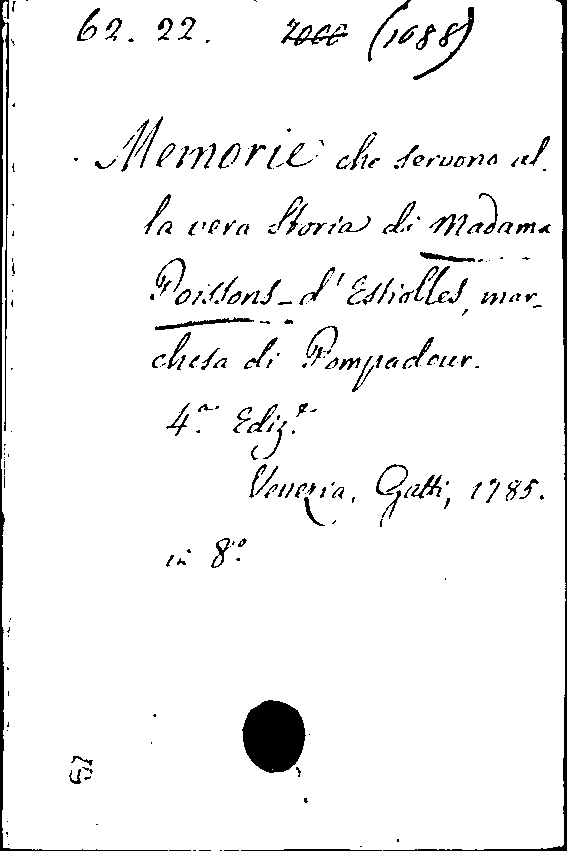 62. 22. (1088)
Memorie che servono al-
la vera Storia di Madama
Poissons-d'Estiolles, mar-
chesa di Pompadour.
4.ª Ediz.e
Venezia, Gatti, 1785.
in 8.º